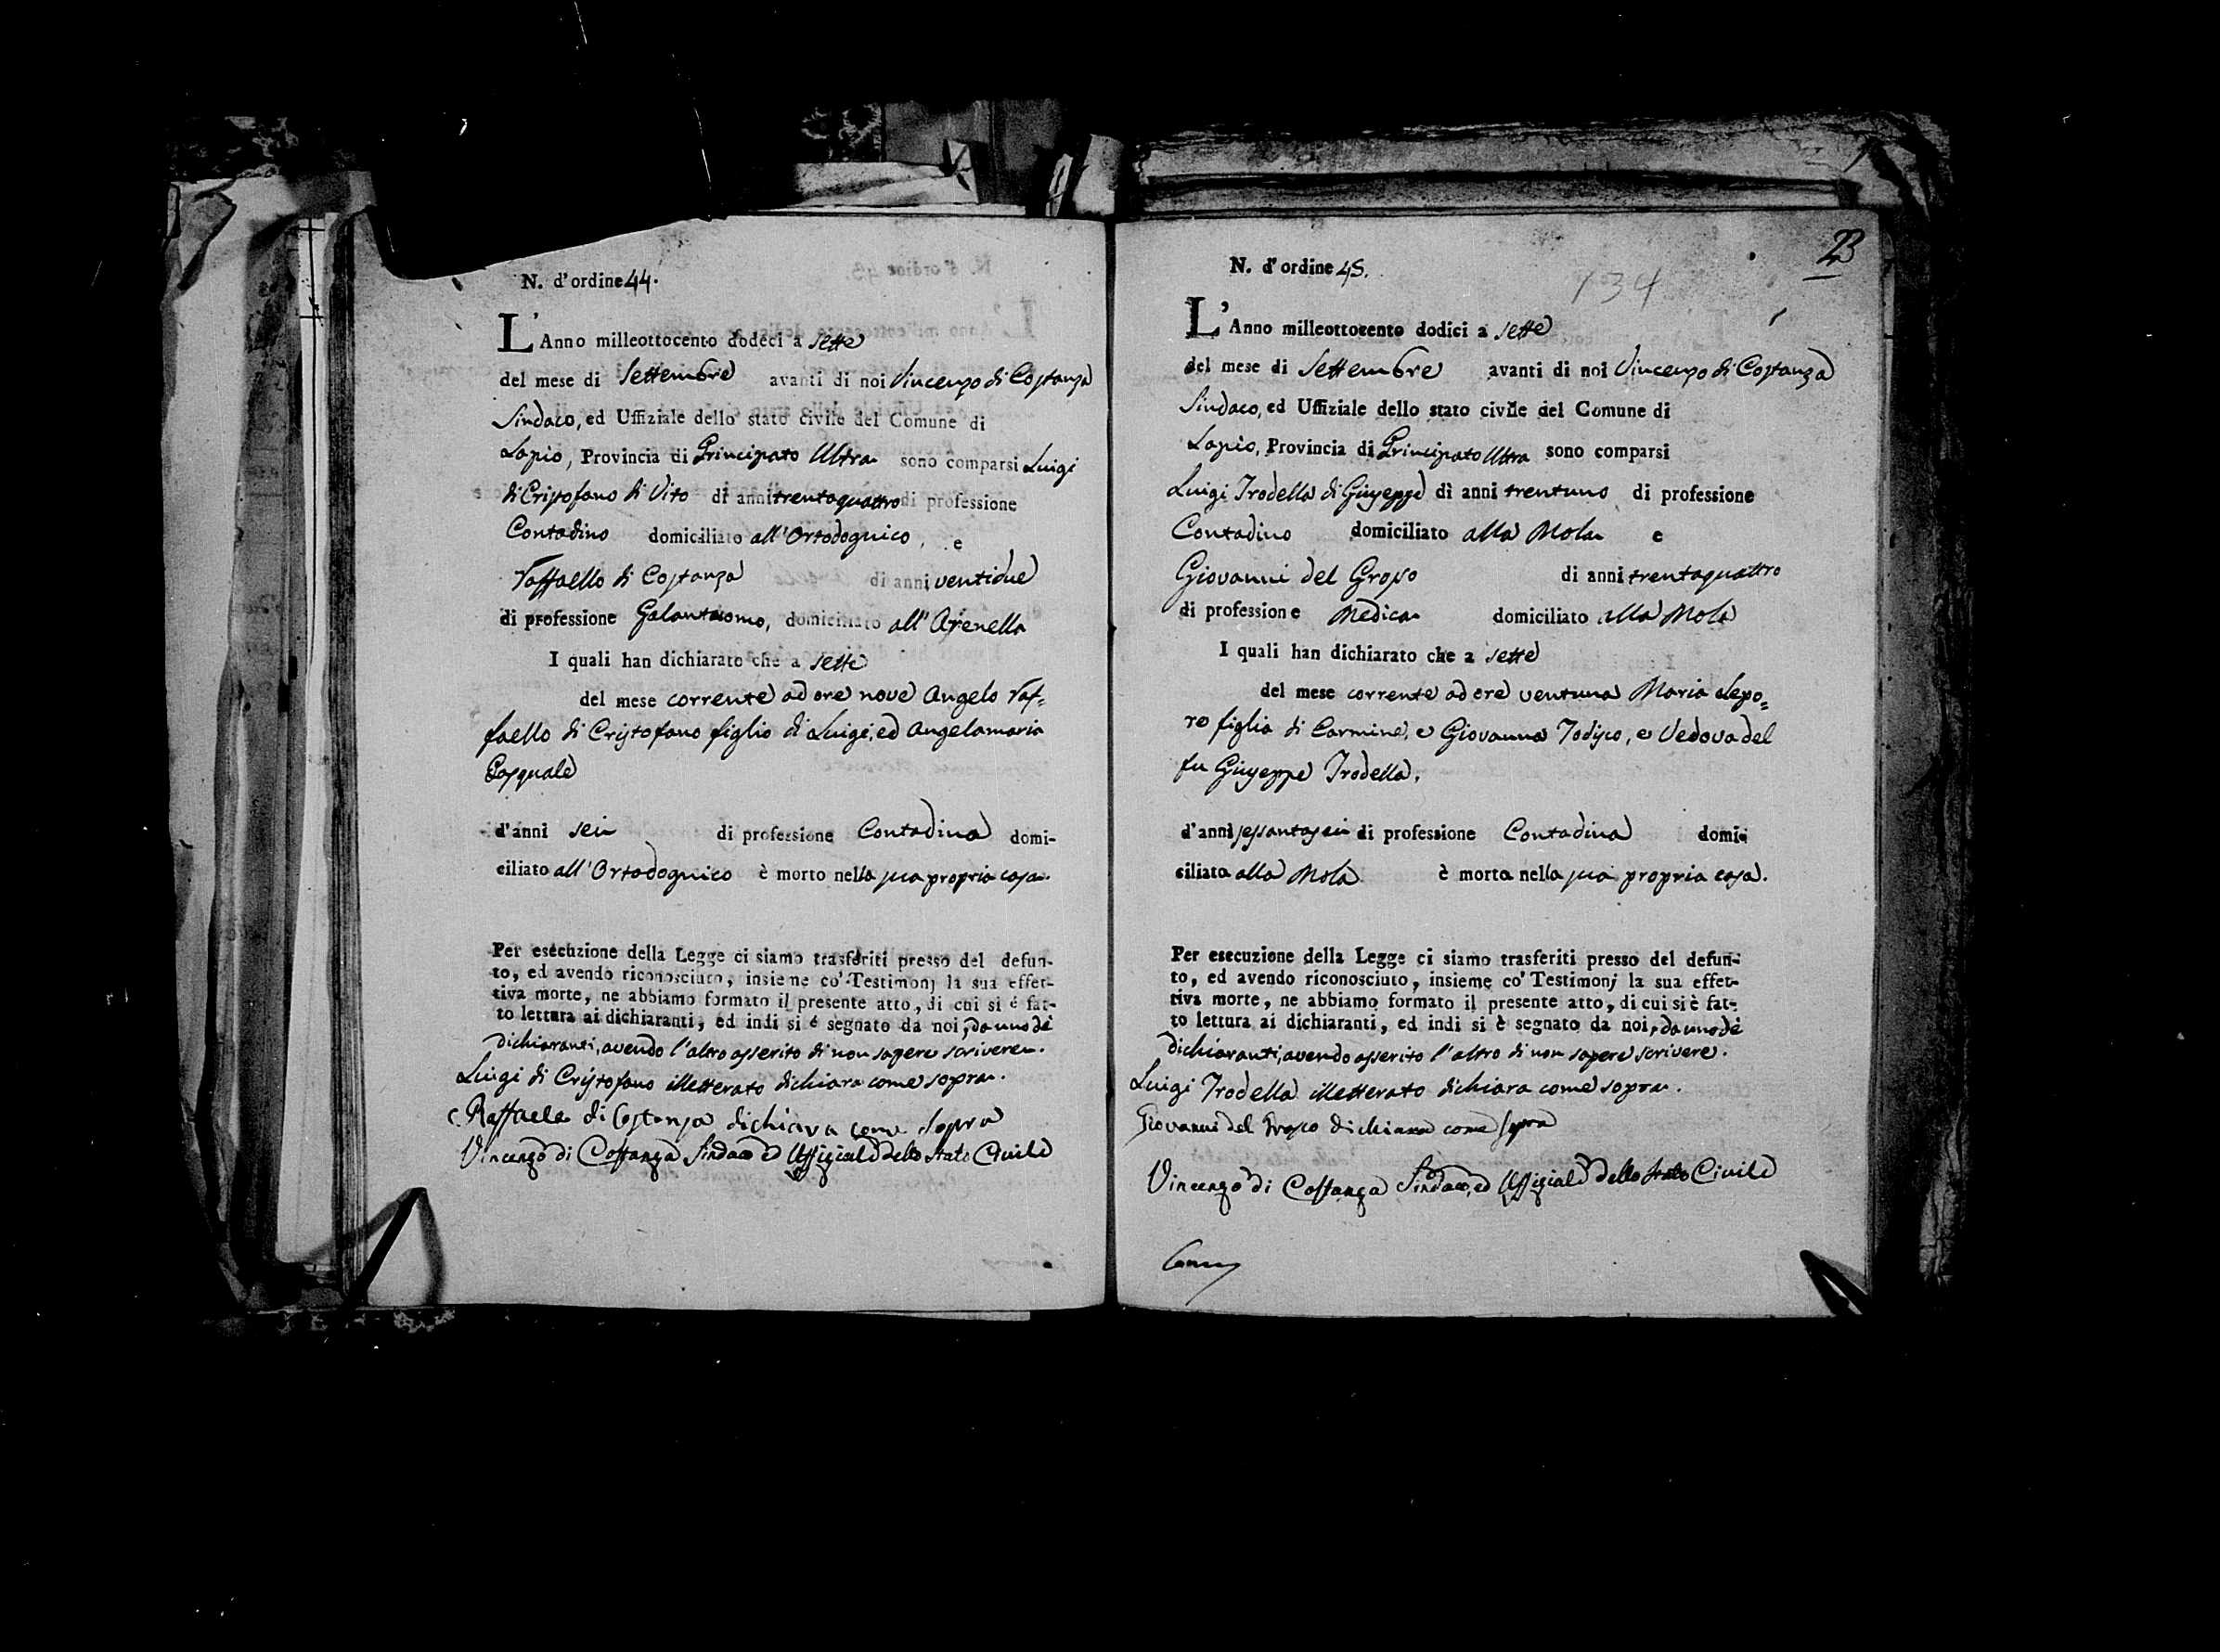 N. d'ordine 44.
L'Anno milleottocento dodeci a sette
del mese di Settembre avanti di noi Vincenzo di Costanza
Sindaco, ed Uffiziale dello stato civile del Comune di
Lapio, Provincia di Principato Ultra sono comparsi Luigi
di Cristofano di Vito di anni trentaquattro di professione
Contadino domiciliato all'Ortodognico, e
Raffaello di Costanza di anni ventidue
di professione Galantuomo, domiciliato all'Arenella
I quali han dichiarato che a sette
del mese corrente ad ore nove Angelo Raf=
faello di Cristofano figlio di Luigi, ed Angelamaria
Pasquale
d'anni sei di professione Contadina domi-
ciliato all'Ortodognico è morto nella sua propria casa.
Per esecuzione della Legge ci siamo trasferiti presso del defun-
to, ed avendo riconosciuto, insieme co' Testimonj la sua effet-
tiva morte, ne abbiamo formato il presente atto, di cui si é fat-
to lettura ai dichiaranti, ed indi si é segnato da noi, da uno dè
dichiaranti, avendo l'altro asserito di non sapere scrivere.
Luigi di Cristofano illetterato dichiara come sopra.
Raffaele di Costanza dichiara come sopra
Vincenzo di Costanza Sindaco ed Uffiziale dello Stato Civile
23
134
N. d'ordine 45.
L'Anno milleottocento dodici a sette
del mese di Settembre avanti di noi Vincenzo di Costanza
Sindaco, ed Uffiziale dello stato civile del Comune di
Lapio, Provincia di Principato Ultra sono comparsi
Luigi Trodella di Giuseppe di anni trentuno di professione
Contadino domiciliato alla Mola e
Giovanni del Grosso di anni trentaquattro
di professione Medica domiciliato alla Mola
I quali han dichiarato che a sette
del mese corrente ad ore ventuna Maria Lepo=
re figlia di Carmine, e Giovanna Todisco, e Vedova del
fu Giuseppe Trodella.
d'anni sessantasei di professione Contadina domi-
ciliata alla Mola è morta nella sua propria casa.
Per esecuzione della Legge ci siamo trasferiti presso del defun-
to, ed avendo riconosciuto, insieme co' Testimonj la sua effet-
tiva morte, ne abbiamo formato il presente atto, di cui si è fat-
to lettura ai dichiaranti, ed indi si è segnato da noi, da uno dè
dichiaranti, avendo asserito l'altro di non sapere scrivere.
Luigi Trodella illetterato dichiara come sopra.
Giovanni del Grosso dichiara come sopra
Vincenzo di Costanza Sindaco, ed Uffiziale dello Stato Civile